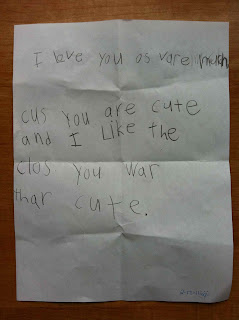 I love you as vare much
cus you are cute
and I Like the
clos you war
thar cute.